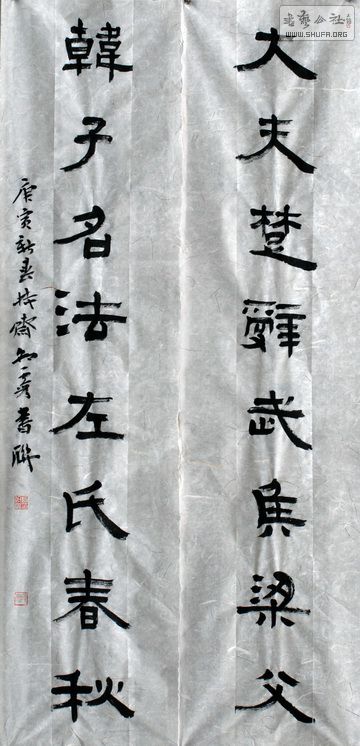 書藝公社
WWW.SHUFA.ORG
大夫楚辭武矦梁父
韓子名法左氏春秋
庚寅新春齋書聯